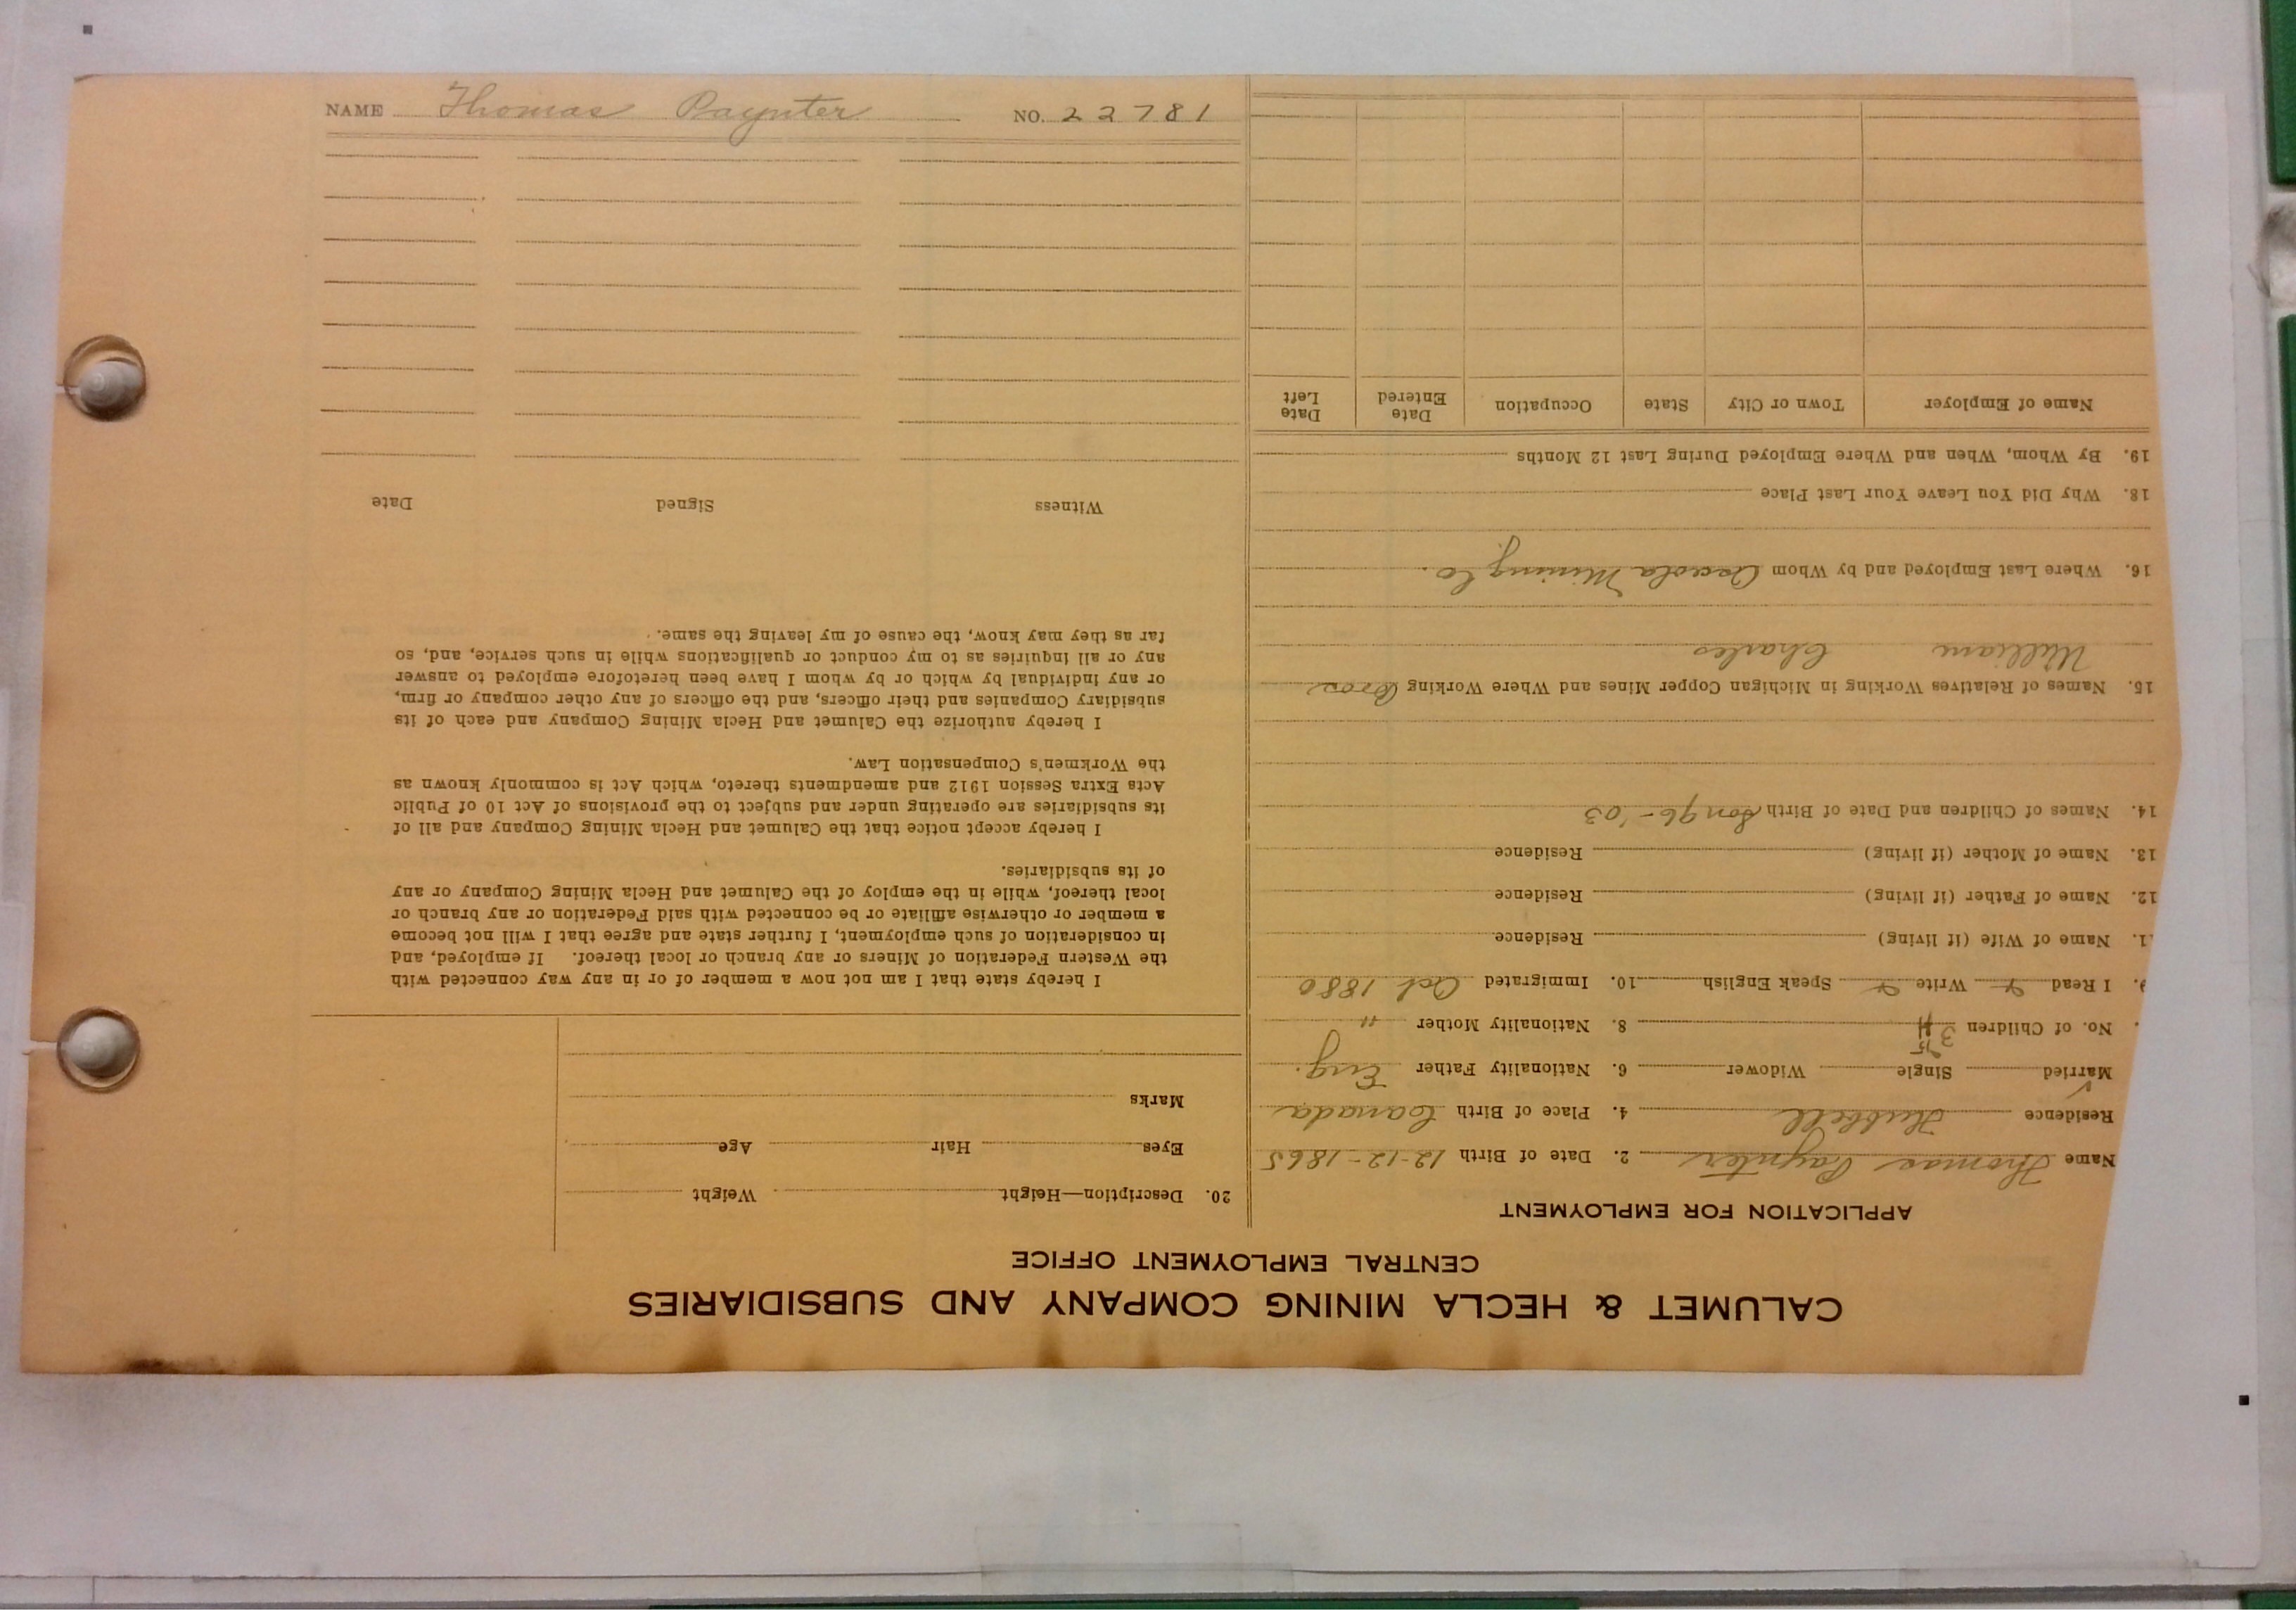 NAME Thomas Paynter NO. 22781
CALUMET & HECLA MINING COMPANY AND SUBSIDIARIES
CENTRAL EMPLOYMENT OFFICE
APPLICATION FOR EMPLOYMENT
Name Thomas Paynter 2. Date of Birth 12-12-1865
Residence Hubbell 4. Place of Birth Canada
Married ✓ Single Widower 6. Nationality Father Eng.
No. of Children 3 8. Nationality Mother "
9. I Read Write Speak English 10. Immigrated Oct 1880
11. Name of Wife (if living) Residence
12. Name of Father (if living) Residence
13. Name of Mother (if living) Residence
14. Names of Children and Date of Birth Son 96-'03
15. Names of Relatives Working in Michigan Copper Mines and Where Working Bros
William Charles
16. Where Last Employed and by Whom Osceola Mining Co.
18. Why Did You Leave Your Last Place
19. By Whom, When and Where Employed During Last 12 Months
Name of Employer Town or City State Occupation Date Entered Date Left
20. Description—Height Weight
Eyes Hair Age
Marks
I hereby state that I am not now a member of or in any way connected with
the Western Federation of Miners or any branch or local thereof. If employed, and
in consideration of such employment, I further state and agree that I will not become
a member or otherwise affiliate or be connected with said Federation or any branch or
local thereof, while in the employ of the Calumet and Hecla Mining Company or any
of its subsidiaries.
I hereby accept notice that the Calumet and Hecla Mining Company and all of
its subsidiaries are operating under and subject to the provisions of Act 10 of Public
Acts Extra Session 1912 and amendments thereto, which Act is commonly known as
the Workmen's Compensation Law.
I hereby authorize the Calumet and Hecla Mining Company and each of its
subsidiary Companies and their officers, and the officers of any other company or firm,
or any individual by which or by whom I have been heretofore employed to answer
any or all inquiries as to my conduct or qualifications while in such service, and, so
far as they may know, the cause of my leaving the same.
Witness Signed Date